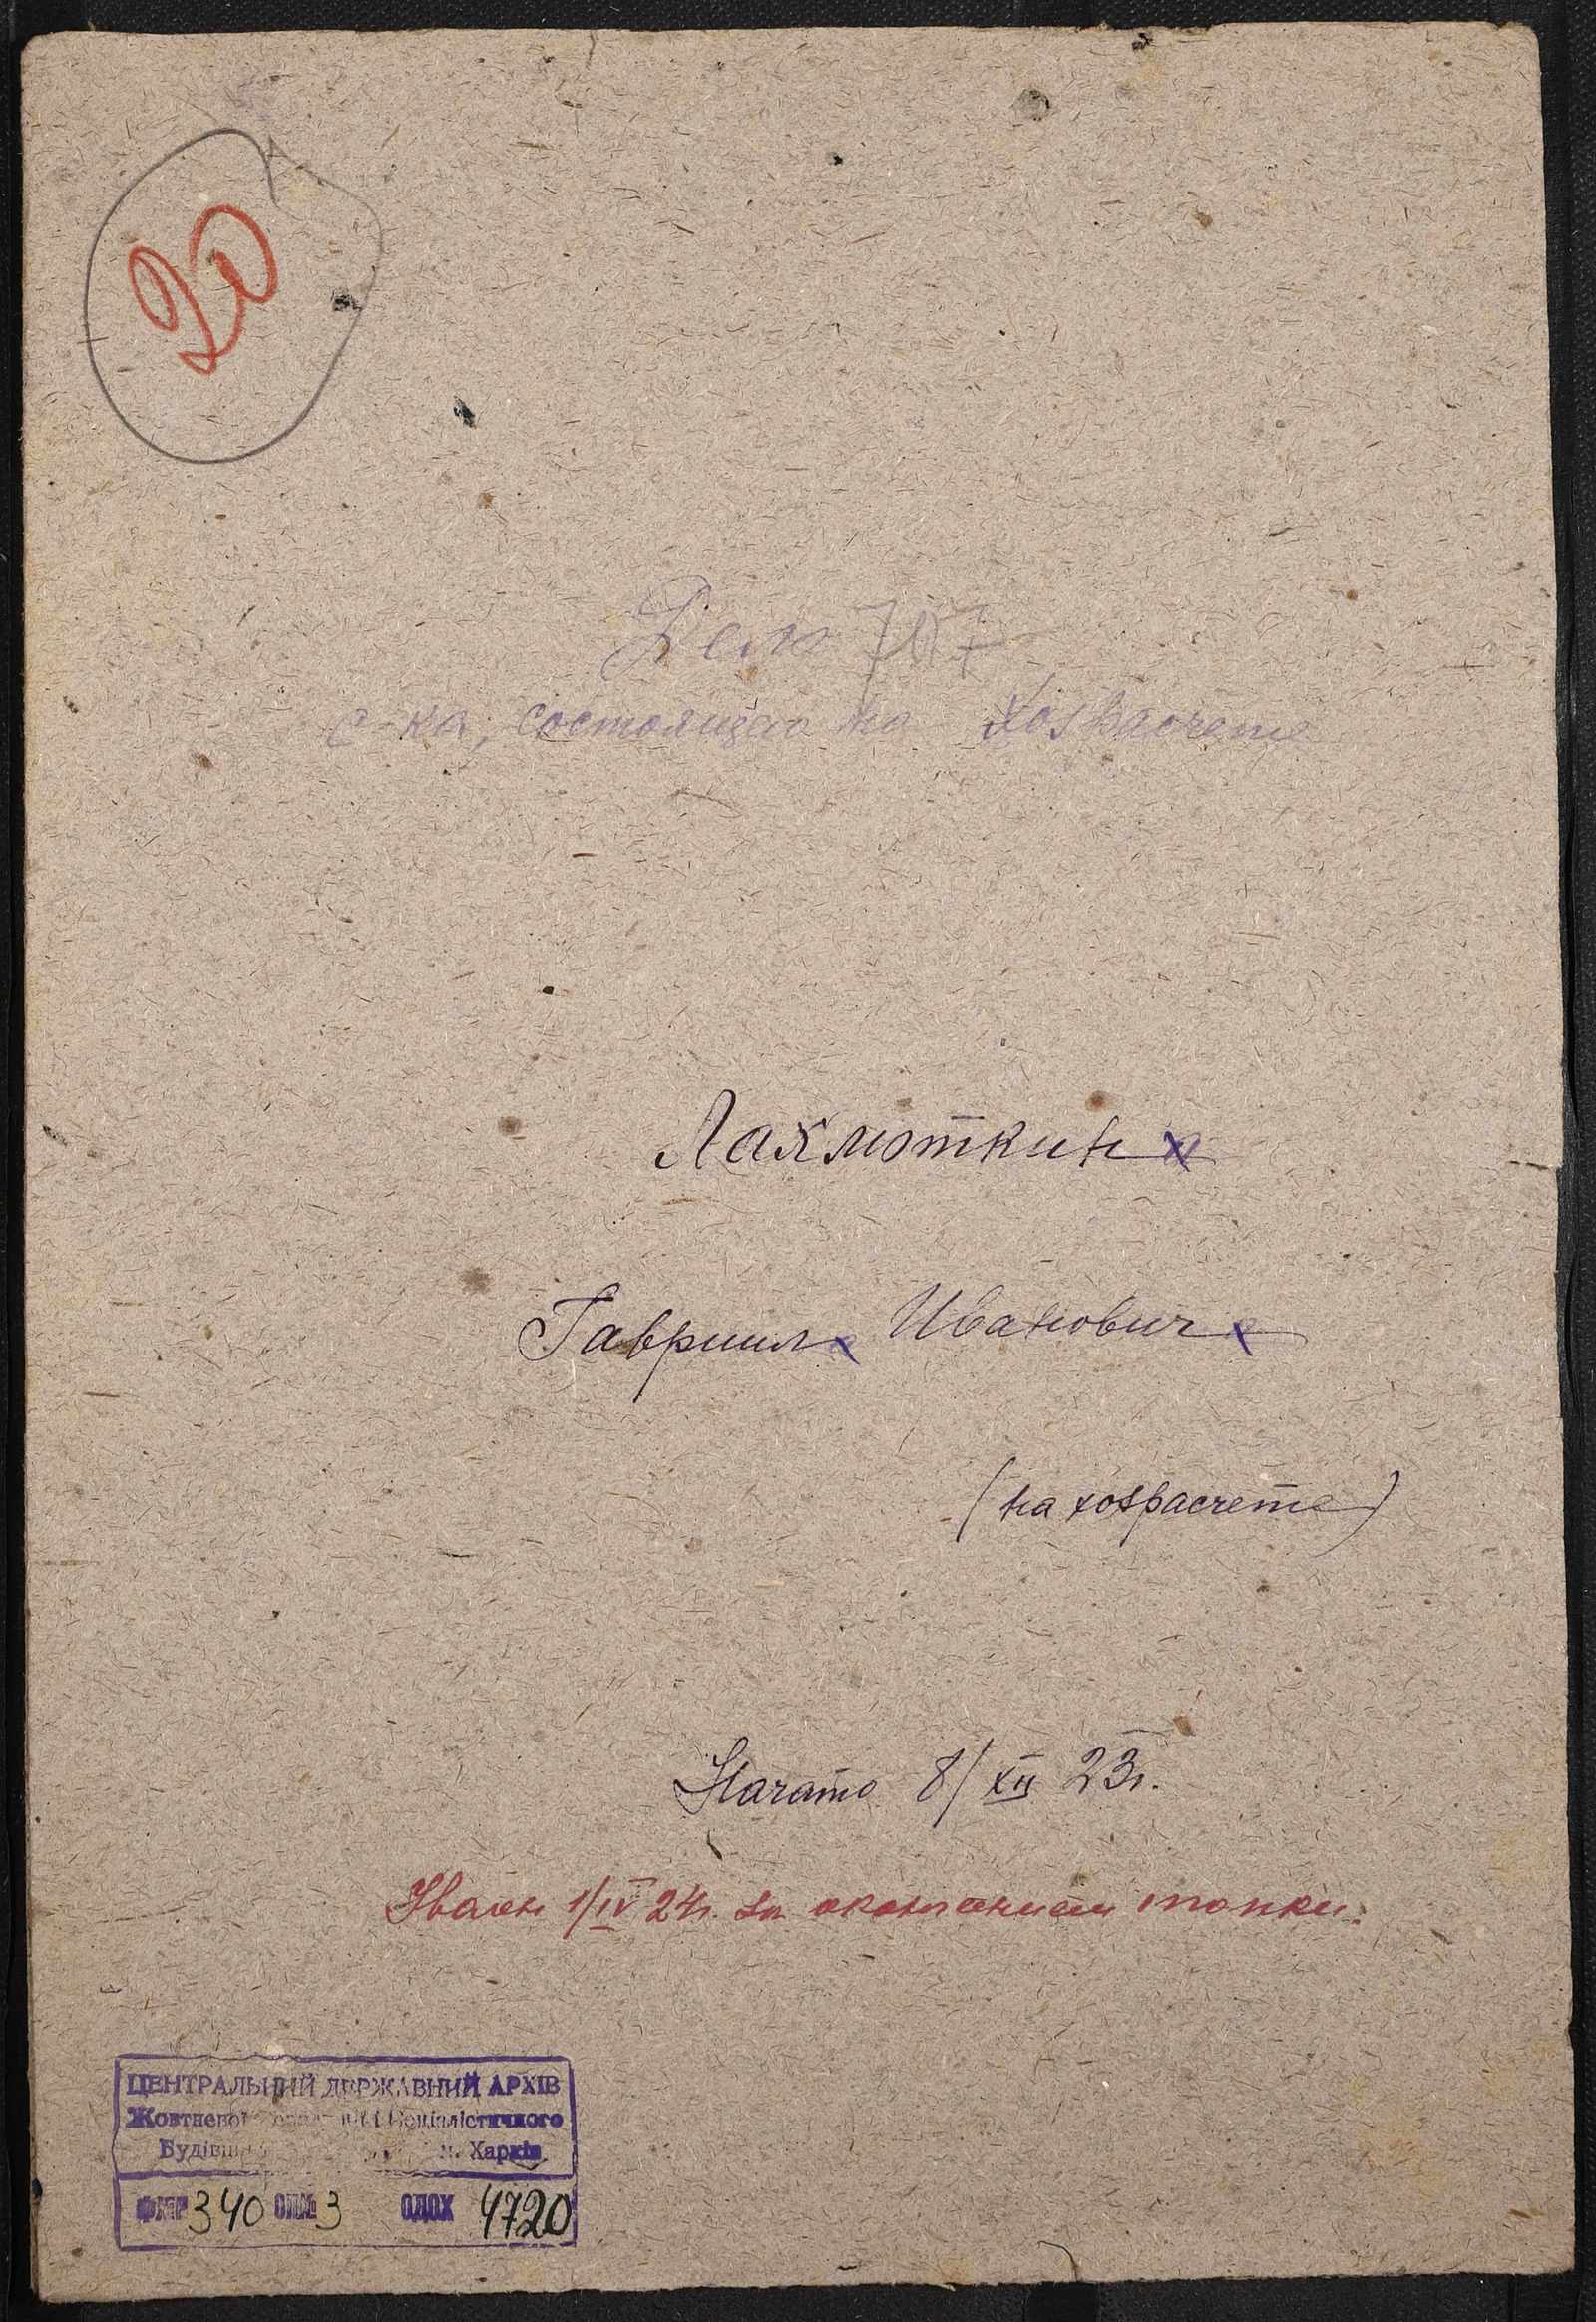 20
Дело 707
с-ка, состоящего на Хозрасчете
Лахмоткин
Гавриил Иванович
(на хозрасчете)
Начато 8/XII 23г.
Уволен 1/IV 24г. за окончанием топки.
ЦЕНТРАЛЬНИЙ ДЕРЖАВНИЙ АРХІВ
Жовтневої і Соціалістичного
м. Харків
340 3 ОДОХ 4720